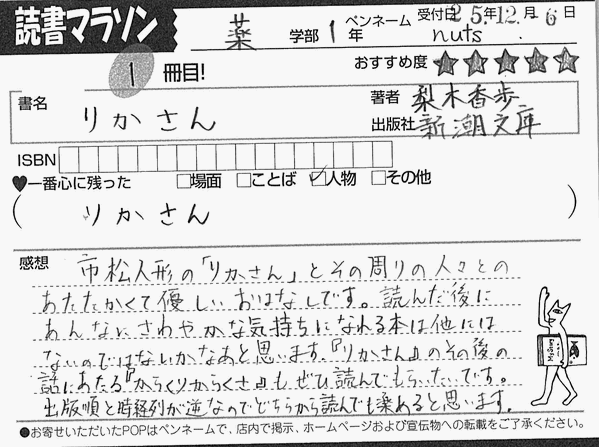 読書マラソン 薬 学部 1 年 ペンネーム nuts 受付日 25年12月6日
1 冊目! おすすめ度 ★★★★★
書名 りかさん 著者 梨木香歩
出版社 新潮文庫
ISBN
♥一番心に残った □場面 □ことば ☑人物 □その他
( りかさん )
感想 市松人形の「りかさん」とその周りの人々との
あたたかくて優しいおはなしです。読んだ後に
あんなにさわやかな気持ちになれる本は他には
ないのではないかなあと思います。『りかさん』のその後の
話にあたる『からくりからくさ』もぜひ読んでもらいたいです。
出版順と時系列が逆なのでどちらから読んでも楽めると思います。
●お寄せいただいたPOPはペンネームで、店内で掲示、ホームページおよび宣伝物への転載をご了承ください。